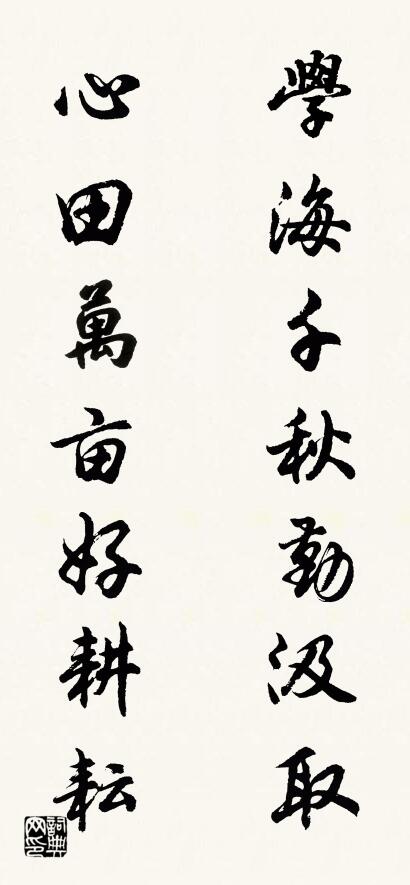 學海千秋勤汲取
心田萬亩好耕耘
詞典網印